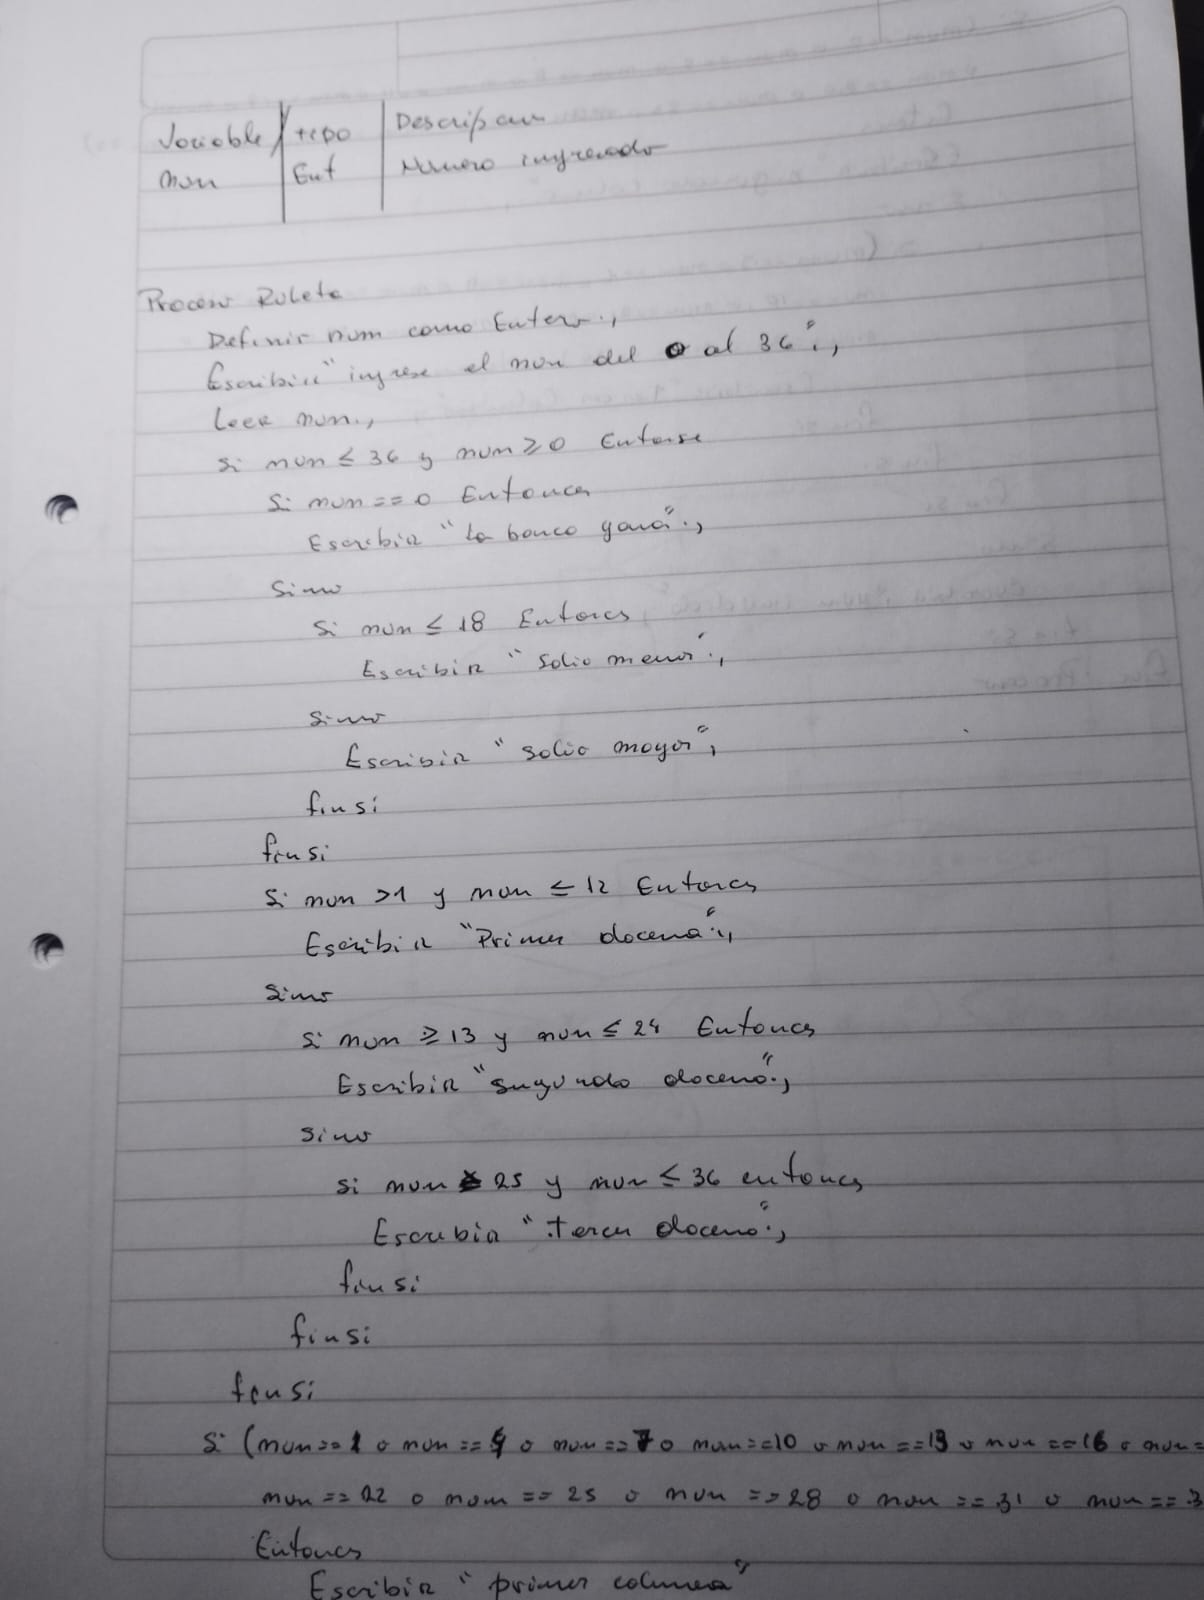 Variable tipo Descripcion
num Ent Numero ingresado
Proceso Ruleta
Definir num como Entero;
Escribir "ingrese el num del 0 al 36";
Leer num;
Si num ≤ 36 y num ≥ 0 Entonce
Si num == 0 Entonces
Escribir "la banca gana";
Sino
Si num ≤ 18 Entonces
Escribir "Salio menor";
Sino
Escribir "Salio mayor";
finsi
finsi
Si num >1 y num ≤ 12 Entonces
Escribir "Primer docena";
Sino
Si num ≥ 13 y num ≤ 24 Entonces
Escribir "Segunda docena";
Sino
si num ≥ 25 y num ≤ 36 entonces
Escribir "tercer docena";
finsi
finsi
finsi
Si (num == 1 o num == 4 o num == 7 o num == 10 o num == 13 o num == 16 o num =
num == 22 o num == 25 o num == 28 o num == 31 o num == 3
Entonces
Escribir "primer columna"